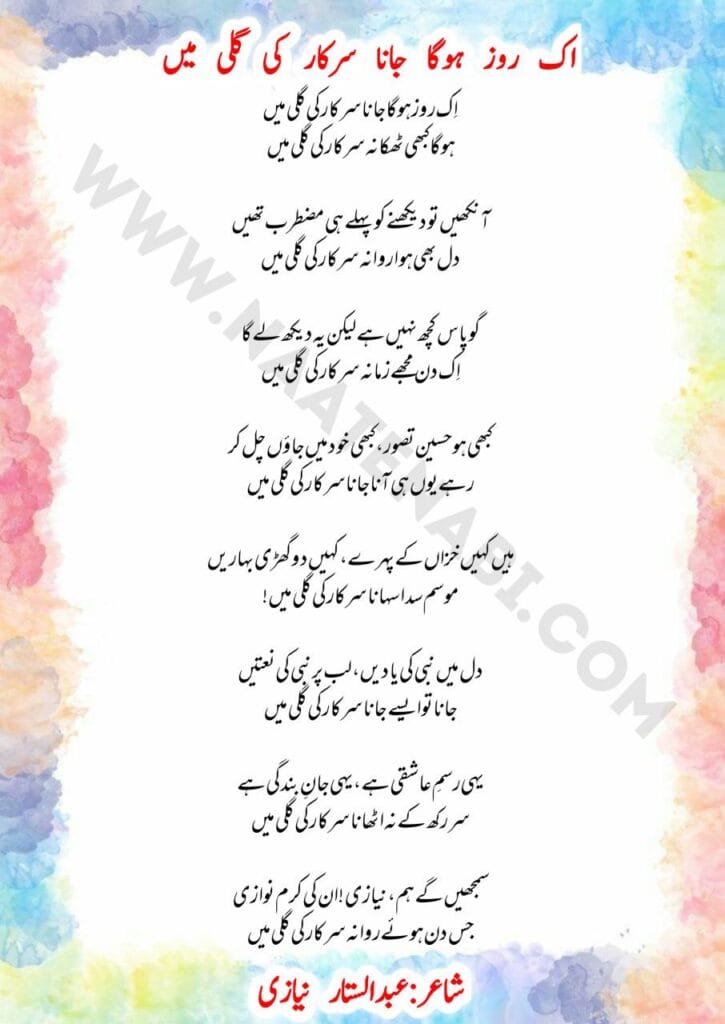 اک روز ہوگا جانا سرکار کی گلی میں
اِک روز ہوگا جانا سرکار کی گلی میں
ہوگا کبھی ٹھکانہ سرکار کی گلی میں
آنکھیں تو دیکھنے کو پہلے ہی مضطرب تھیں
دل بھی ہوا روانہ سرکار کی گلی میں
گو پاس کچھ نہیں ہے لیکن یہ دیکھ لے گا
اِک دن مجھے زمانہ سرکار کی گلی میں
کبھی ہو حسین تصور، کبھی خود میں جاؤں چل کر
رہے یوں ہی آنا جانا سرکار کی گلی میں
ہیں کہیں خزاں کے پہرے، کہیں دو گھڑی بہاریں
موسم سدا سہانا سرکار کی گلی میں!
دل میں نبی کی یادیں، لب پر نبی کی نعتیں
جانا تو ایسے جانا سرکار کی گلی میں
یہی رسمِ عاشقی ہے، یہی جانِ بندگی ہے
سر رکھ کے نہ اٹھانا سرکار کی گلی میں
سمجھیں گے ہم، نیازی! ان کی کرم نوازی
جس دن ہوئے روانہ سرکار کی گلی میں
شاعر:عبدالستار نیازی
WWW.NAATENABI.COM